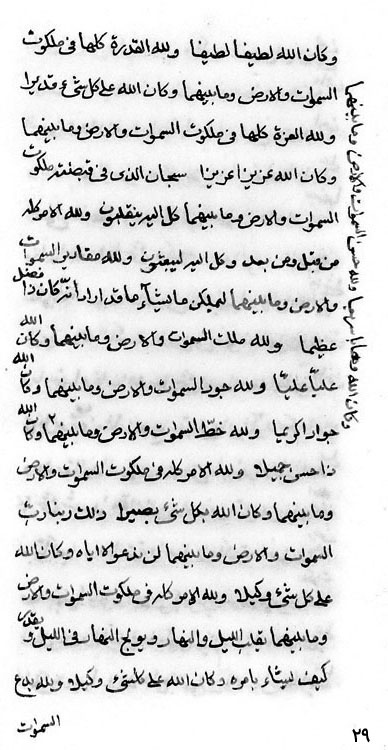 وكان الله لطيفا لطيفا ولله القدرة كلها في ملكوت
السموات والارض وما بينهما وكان الله على كل شيء قديرا
ولله العزة كلها في ملكوت السموات والارض وما بينهما
وكان الله عزيزا عزيزا سبحان الذي في قبضته ملكوت
السموات والارض وما بينهما كل اليه ينقلبون ولله الامر كله
من قبل ومن بعد وكل اليه ليبعثون ولله مقادير السموات
والارض وما بينهما ليملكن ما يشاء ما قد اراد انه كان ذا فضل
عظيما ولله ملك السموات والارض وما بينهما وكان الله
عليا عليا ولله جود السموات والارض وما بينهما وكان الله
جوادا كريما ولله خط السموات والارض وما بينهما وكان الله
ذا حسن جميلا ولله الامر كله في ملكوت السموات والارض
وما بينهما وكان الله بكل شيء بصيرا ذلك ربنا رب
السموات والارض وما بينهما لن ندعوا الا اياه وكان الله
على كل شيء وكيلا ولله الامر كله في ملكوت السموات والارض
وما بينهما يقلب الليل والنهار ويولج النهار في الليل ويقدر
كيف يشاء بامره وكان الله على كل شيء وكيلا ولله بدع
السموات
٢٩
وكان الله وهابا سريعا ولله حسن السموات والارض وما بينهما